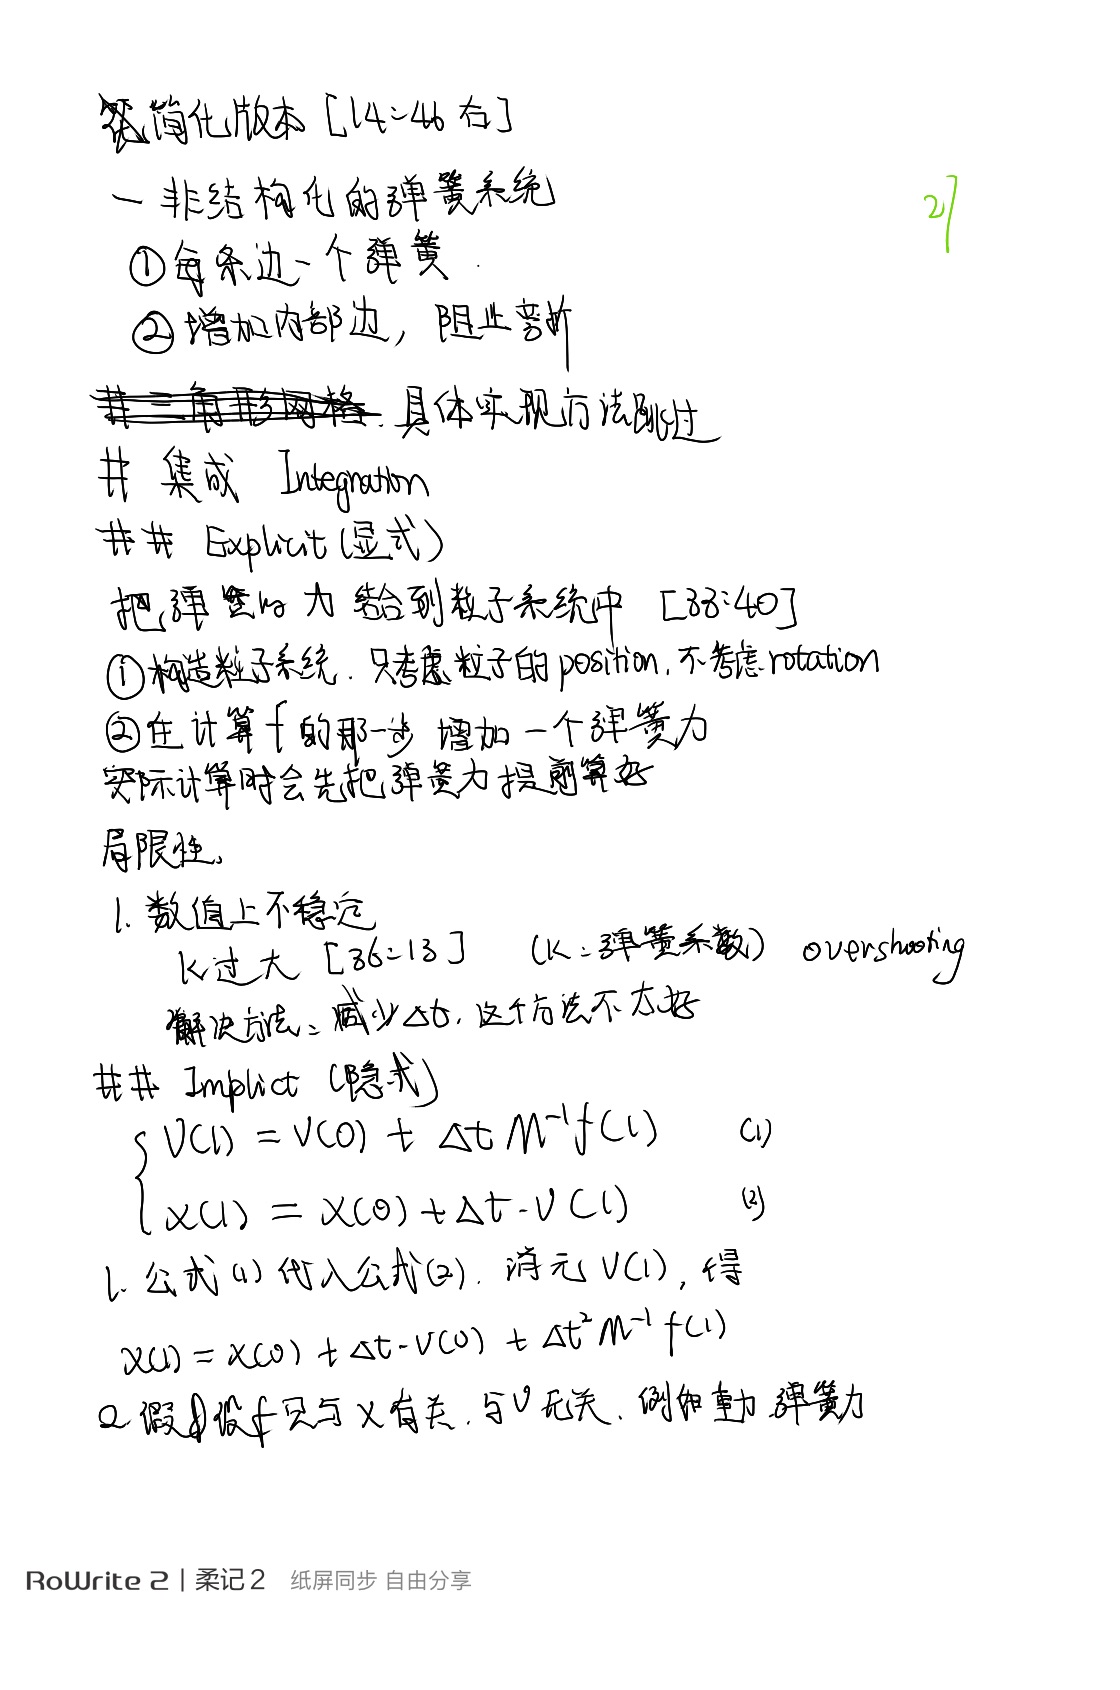 简化版本 [14:46 右]
一 非结构化的弹簧系统
2)
① 每条边一个弹簧
② 增加内部边, 阻止弯折
# 三角形网格. 具体实现方法跳过
# 集成 Integration
## Explicit (显式)
把弹簧的力结合到粒子系统中 [33:40]
① 构造粒子系统. 只考虑粒子的position, 不考虑rotation
② 在计算f的那一步 增加一个弹簧力
实际计算时会先把弹簧力提前算好
局限性,
1. 数值上不稳定
k过大 [36:13] (k:弹簧系数) overshooting
解决方法: 减少Δt, 这个方法不太好
## Implict (隐式)
V(1) = V(0) + Δt M⁻¹f(1) (1)
X(1) = X(0) + Δt·V(1) (2)
1. 公式(1)代入公式(2). 消元V(1), 得
X(1) = X(0) + Δt·V(0) + Δt² M⁻¹ f(1)
2 假设f只与X有关, 与V无关, 例如重力 弹簧力
RoWrite 2 | 柔记 2 纸屏同步 自由分享